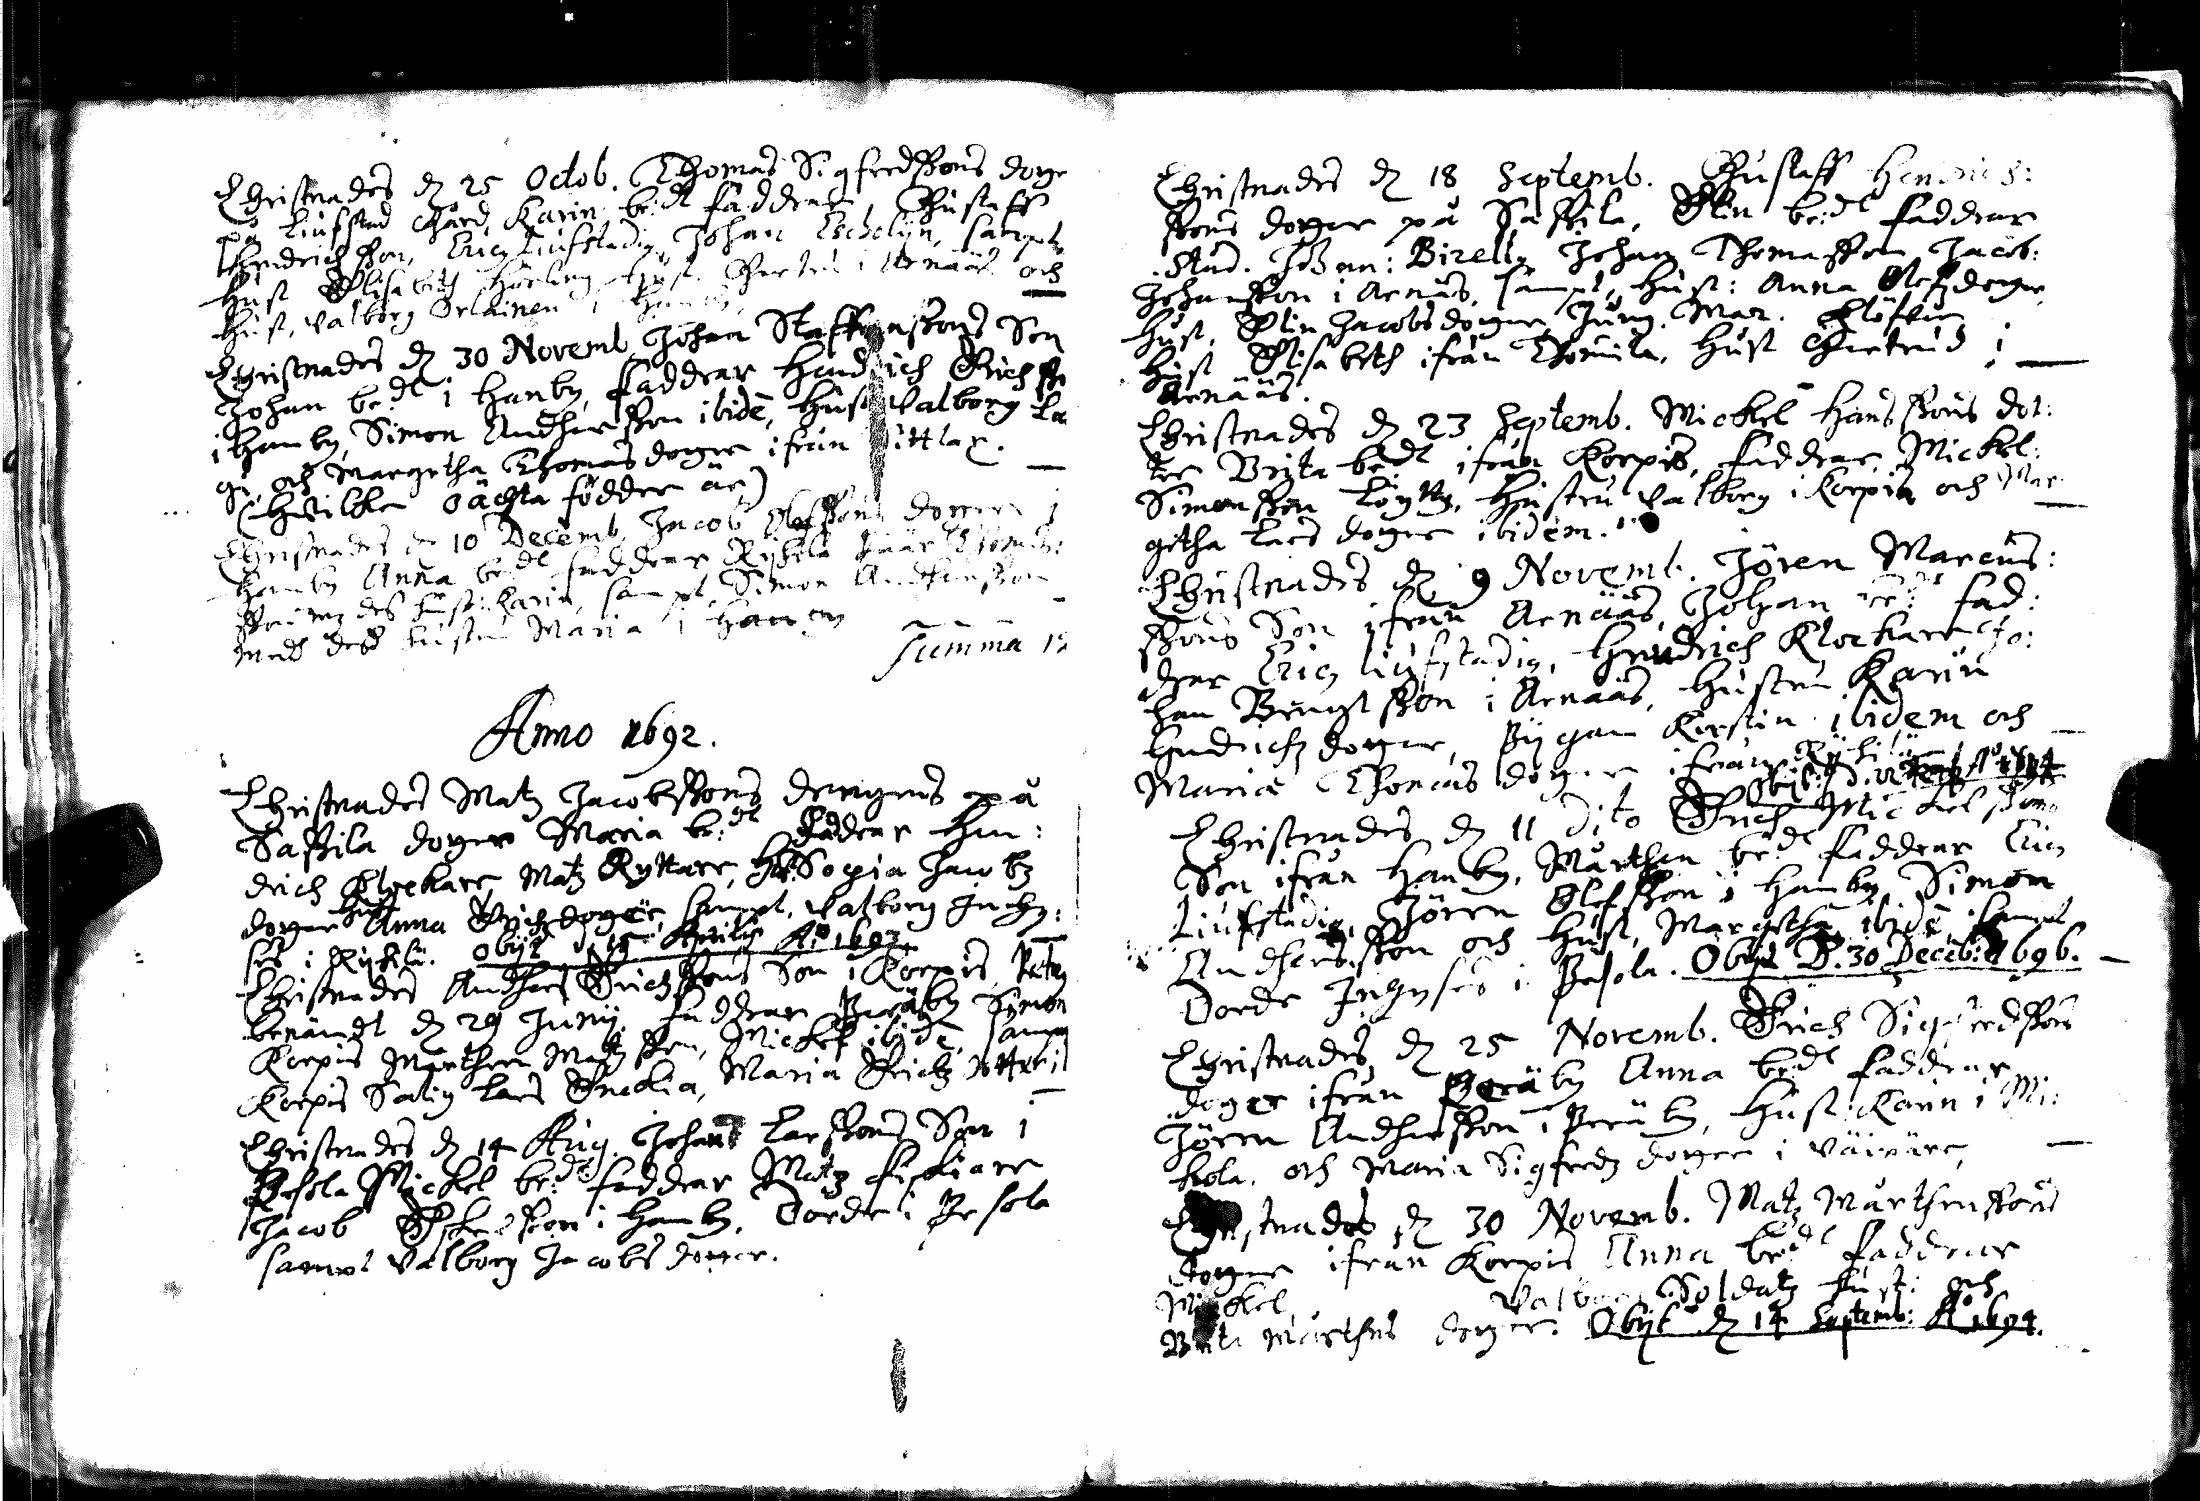 Christnades d 25 Octob. Thomas Sigfredssons dotter
på Liufstad Gård, Karin be:dt faddrar, Gustaff
Hendrichsson, Eric Liufstadig, Johan Escholijn, sampt
Hust Elisabeth Hust. Gertrud i Arnääs och
Hust. Valborg
Christnades d 30 Novemb. Johan Staffanssons Son
Johan be:dt i Hanby, faddrar Hendrich Erichsson
i Hanby, Simon Andhersson ibidē, Hust Valborg La
och Margetha Thomas dotter ifrån Pittlax.
(hvilken oächta födder är)
Christnades d 10 Decemb. Jacob Olofssons dotter i
Hanby Anna be:dt faddrar
hust: Karin, sampt Simon Andhersson
med dess hustru Maria i Hanby
Summa 12
Anno 1692.
Christnades Matz Jacobssons drengens på
Sassila dotter Maria be:dt faddrar Hen:
drich Klockare, Matz Ryttare, H: Sophia Jacobz
dotter Hust Anna Erichz dotter sampt. Valborg
i Obijt d. 15 Aprilis A:o 1693
Christnades Andhers Erichssons Son i Korpis,
benämdt d 29 Junij. faddrar Peräby Simon
Korpis Marthen Matzsson, Mickel ibidē, sampt
Korpis Lars Maria Erichz dotter i
Christnades d 14 Aug. Johans Larssons Son i
Pesola Mickel be:dt faddrar Matz fiskiare
Jacob i Hanby, Dordi i Pesola
sampt Valborg Jacobs dotter.
Christnades d 18 Septemb. Gustaff Hendrich:
ssons dotter på Sassila, Elin be:dt faddrar
Stud. Johan: Birell, Johan Thomasson Jacob:
Johansson i Arnäs, sampt, Hust: Anna Olofz dotter,
Hust. Elin Jacobs dotter, Jung. Mar.
Hust Elisabeth ifrån Thomila, Hust Gertrud i
Arnääs.
Christnades d 23 Septemb. Mickel Hanssons dot:
ter Brita be:dt ifrån Korpis, faddrar Mickel:
Simonsson Löytty, Hustru Valborg i Korpis och Mar
getha Lars dotter ibidem.
Christnades d 9 Novemb. Jören Marcus:
ssons Son ifrån Arnääs, Johan be:dt fad:
drar Eric Liufstadig, Hendrich Klockare Jo:
han Bengtsson i Arnääs, Hustru Karin
Hendrichz dotter, Pigan Kirstin ibidem och
Maria Thomas dotter ifrån
Christnades d 11 Dito Erich Mickelssons
Son ifrån Hanby, Mårthen be:dt faddrar Eric
Liufstadig, Jören Olofsson i Hanby, Simon
Andhersson och Hust. Margetha ibidē, sampt
Dorde i Pesola. Obijt D. 30 Decēb: 1696.
Christnades d 25 Novemb. Erich Sigfredssons
dotter ifrån Peräby Anna be:dt faddrar
Jören Andhersson i Peräby, Hust: Karin i Mi:
kola. och Maria Sigfredz dotter i Väiväre
Christnades d 30 Novemb. Matz Mårthenssons
dotter ifrån Korpis Anna be:dt faddrar
Mickel Valborg Soldatz Hust: och
Brita Mårthens dotter. Obijt d 14 Septemb: A:o 1694.